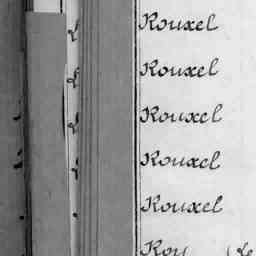 Rouxel
Rouxel
Rouxel
Rouxel
Rouxel
Roy